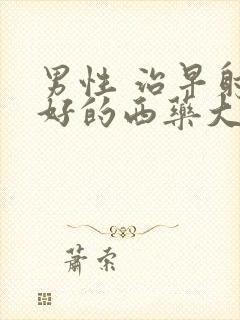 男性 治早射
好的西藥大
蕭索